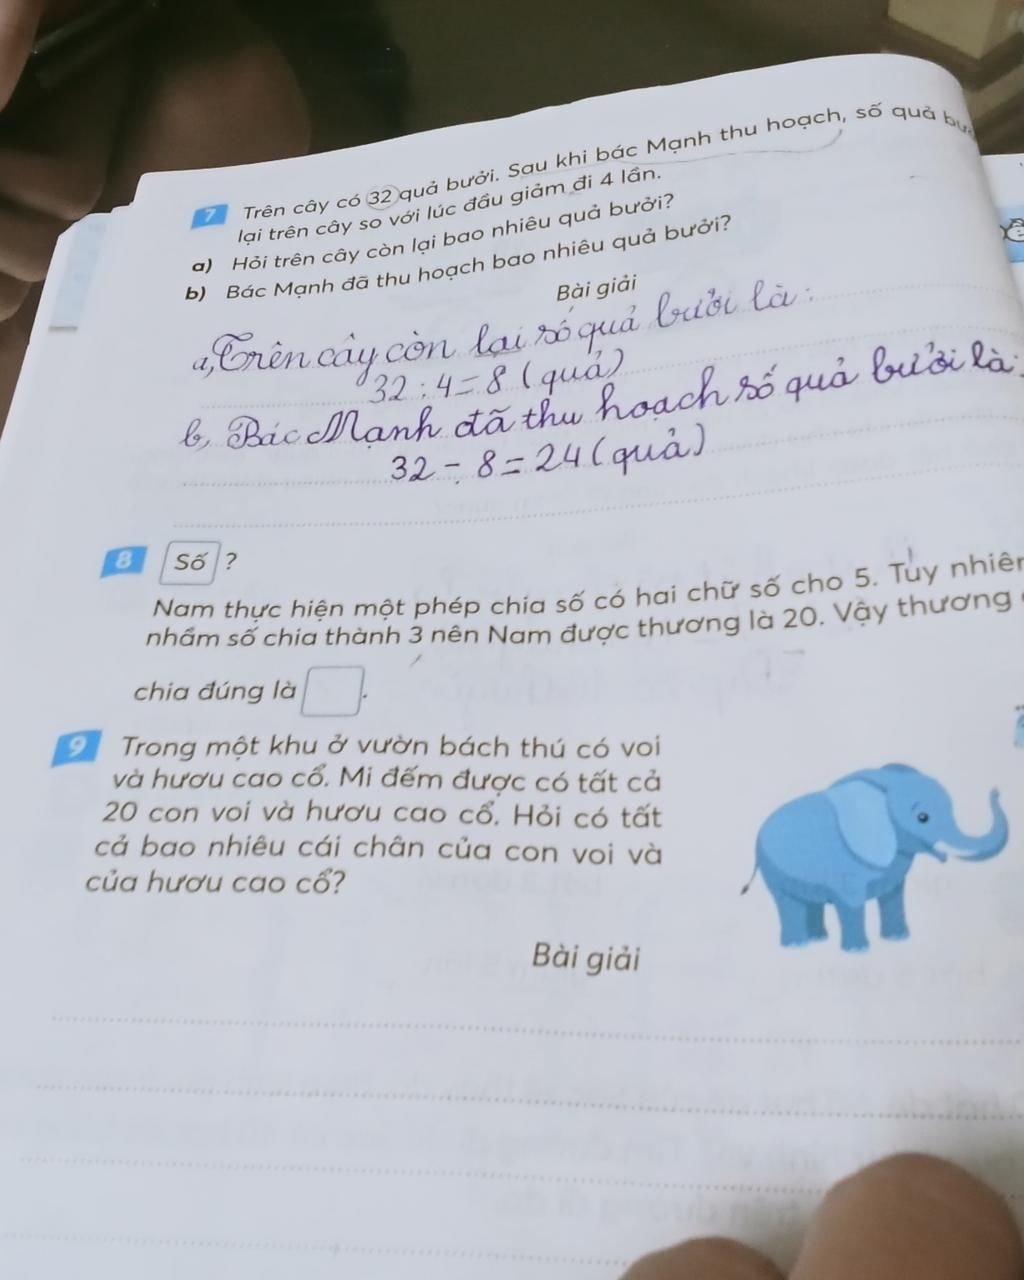 7 Trên cây có 32 quả bưởi. Sau khi bác Mạnh thu hoạch, số quả
lại trên cây so với lúc đầu giảm đi 4 lần.
a) Hỏi trên cây còn lại bao nhiêu quả bưởi?
b) Bác Mạnh đã thu hoạch bao nhiêu quả bưởi?
Bài giải
a, Trên cây còn lại số quả bưởi là:
32 : 4 = 8 (quả)
b, Bác Mạnh đã thu hoạch số quả bưởi là:
32 - 8 = 24 (quả)
8 Số ?
Nam thực hiện một phép chia số có hai chữ số cho 5. Tuy nhiên
nhầm số chia thành 3 nên Nam được thương là 20. Vậy thương
chia đúng là .
9 Trong một khu ở vườn bách thú có voi
và hươu cao cổ. Mi đếm được có tất cả
20 con voi và hươu cao cổ. Hỏi có tất
cả bao nhiêu cái chân của con voi và
của hươu cao cổ?
Bài giải